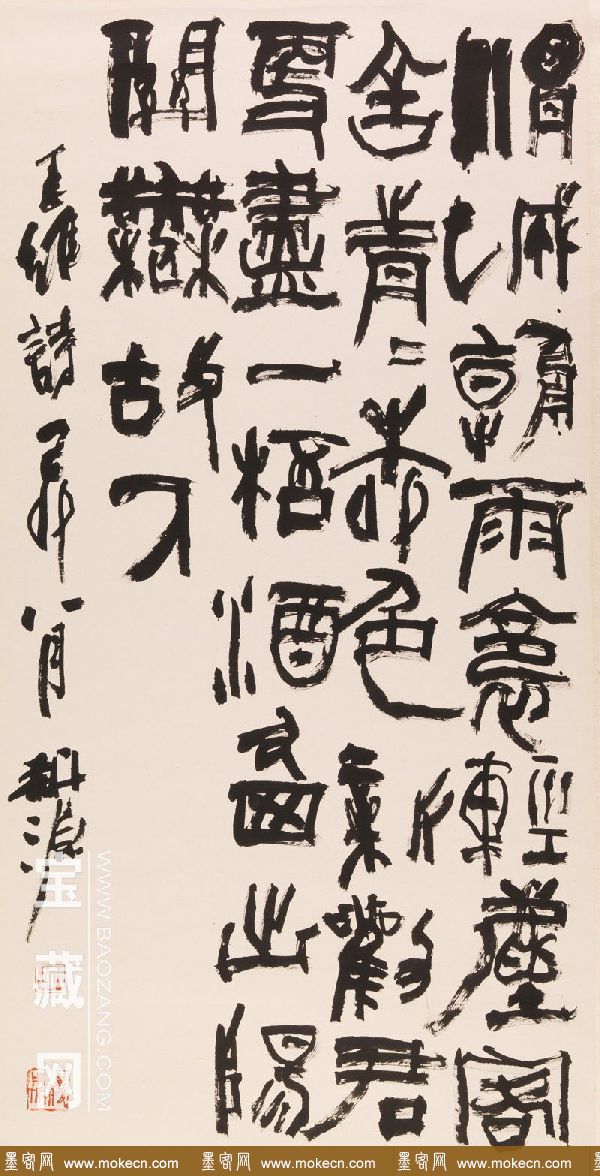 渭城朝雨裛輕塵客
舍青〻柳色新勸君
更盡一桮酒西出陽
關無故人
王維詩 八月
宝藏网
WWW.BAOZANG.COM
墨客网 www.mokecn.com 墨客网 www.mokecn.com 墨客网 www.mokecn.com 墨客网 www.mokecn.com 墨